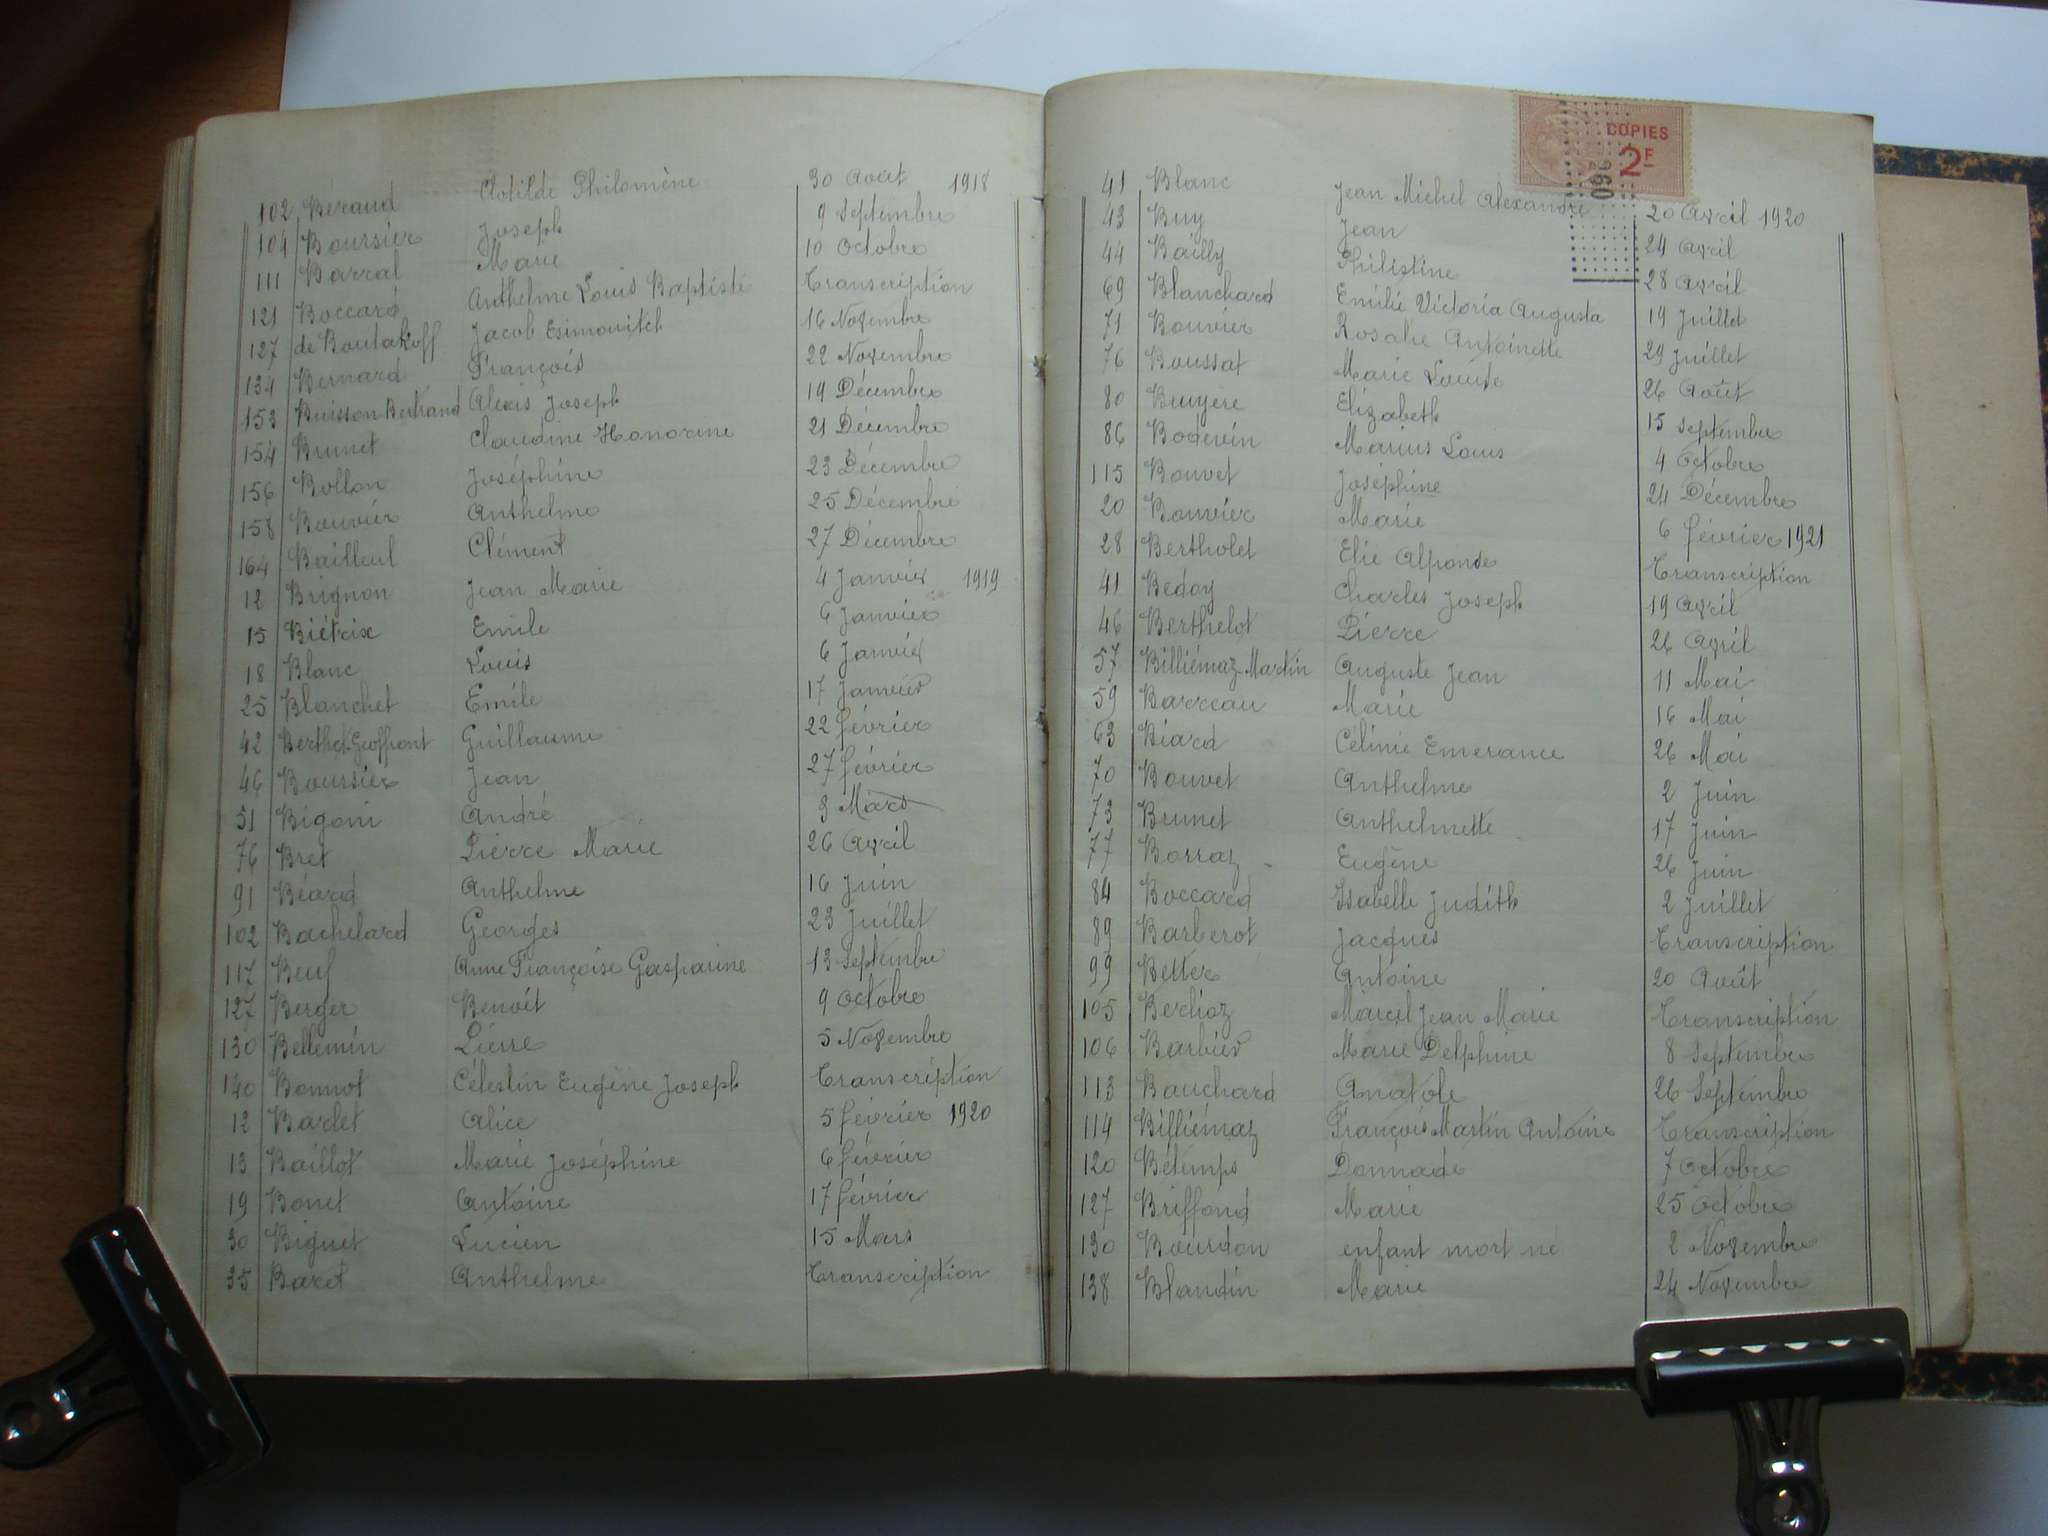 102 Béraud Clotilde Philomène 30 Août 1918
104 Boursier Joseph 9 Septembre
111 Barral Marie 10 Octobre
121 Boccard Anthelme Louis Baptiste Transcription
127 de Boutakoff Jacob Esimovitch 16 Novembre
134 Bernard François 22 Novembre
153 Buisson Bertrand Alexis Joseph 19 Décembre
154 Brunet Claudine Honorine 21 Décembre
156 Bollon Joséphine 23 Décembre
158 Bouvier Anthelme 25 Décembre
164 Bailleul Clément 27 Décembre
12 Brignon Jean Marie 4 Janvier 1919
15 Biétrix Emile 6 Janvier
18 Blanc Louis 6 Janvier
25 Blanchet Emile 17 Janvier
42 Berthet Geoffront Guillaume 22 février
46 Boursier Jean 27 février
51 Bigoni André 3 Mars
76 Bret Pierre Marie 26 Avril
91 Béard Anthelme 16 Juin
102 Bachelard Georges 23 Juillet
117 Beuf Anne Françoise Gasparine 13 Septembre
127 Berger Benoît 9 Octobre
130 Bellemin Pierre 5 Novembre
140 Bonnot Célestin Eugène Joseph Transcription
12 Barlet Alice 5 février 1920
13 Baillot Marie Joséphine 6 février
19 Bonet Antoine 17 février
30 Biguet Lucien 15 Mars
35 Baret Anthelme Transcription
COPIES
2F
41 Blanc Jean Michel Alexandre 20 Avril 1920
43 Buy Jean 24 Avril
44 Bailly Philistine 28 Avril
69 Blanchard Emilie Victoria Augusta 19 Juillet
71 Bouvier Rosalie Antoinette 29 Juillet
76 Boussat Marie Louise 26 Août
80 Bruyère Elizabeth 15 Septembre
86 Bogevin Marius Louis 4 Octobre
115 Bouvet Joséphine 24 Décembre
20 Bouvier Marie 6 février 1921
28 Bertholet Elie Alponse Transcription
41 Bedoy Charles Joseph 19 Avril
46 Berthelot Pierre 26 Avril
57 Billiémaz Martin Auguste Jean 11 Mai
59 Barreau Marie 16 Mai
63 Béard Célinie Emerance 26 Mai
70 Bouvet Anthelme 2 Juin
73 Brunet Anthelmette 17 Juin
77 Borraz Eugène 26 Juin
84 Boccard Isabelle Judith 2 Juillet
89 Barberot Jacques Transcription
99 Better Antoine 20 Août
105 Berlioz Marcel Jean Marie Transcription
106 Barbier Marie Delphine 8 Septembre
113 Bauchard Anatole 26 Septembre
114 Billiémaz François Martin Antoine Transcription
120 Bétemps Donnade 7 Octobre
127 Briffond Marie 25 Octobre
130 Bourdon enfant mort né 2 Novembre
138 Blandin Marie 24 Novembre